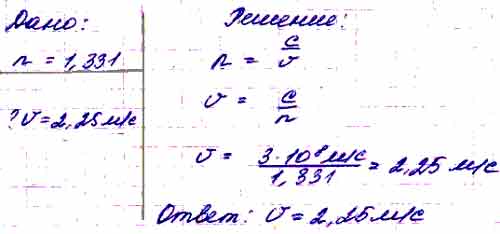 Дано:
n = 1,331
? υ = 2,25 м/с
Решение:
n = c/υ
υ = c/n
υ = 3·10⁸ м/с / 1,331 = 2,25 м/с
Ответ: υ = 2,25 м/с